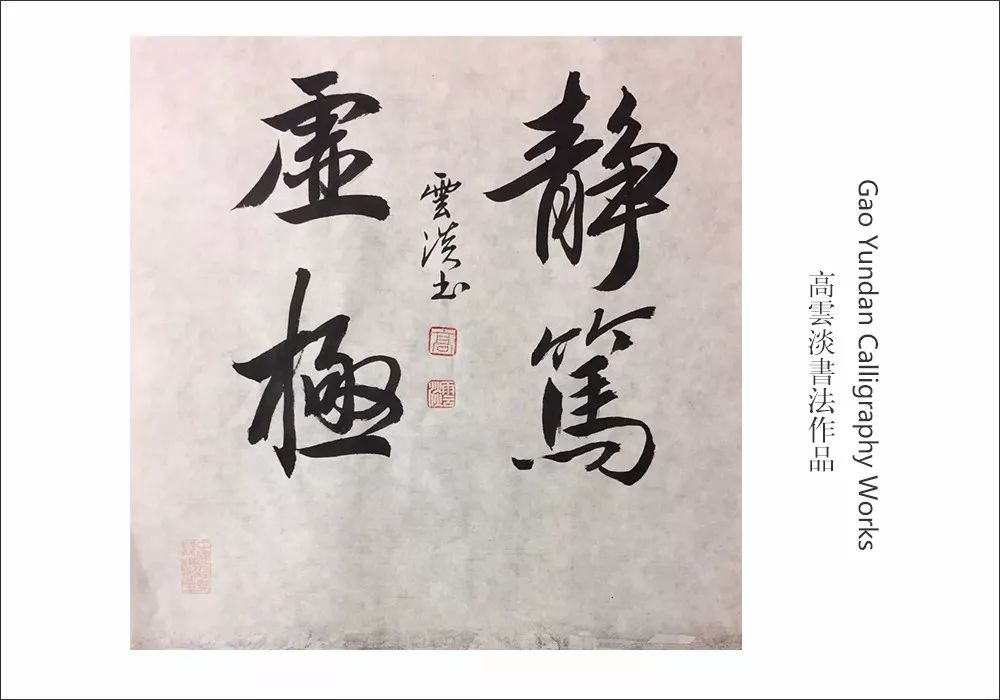 静篤
雲淡书
高
雲淡
虚極
高雲淡書法作品
Gao Yundan Calligraphy Works